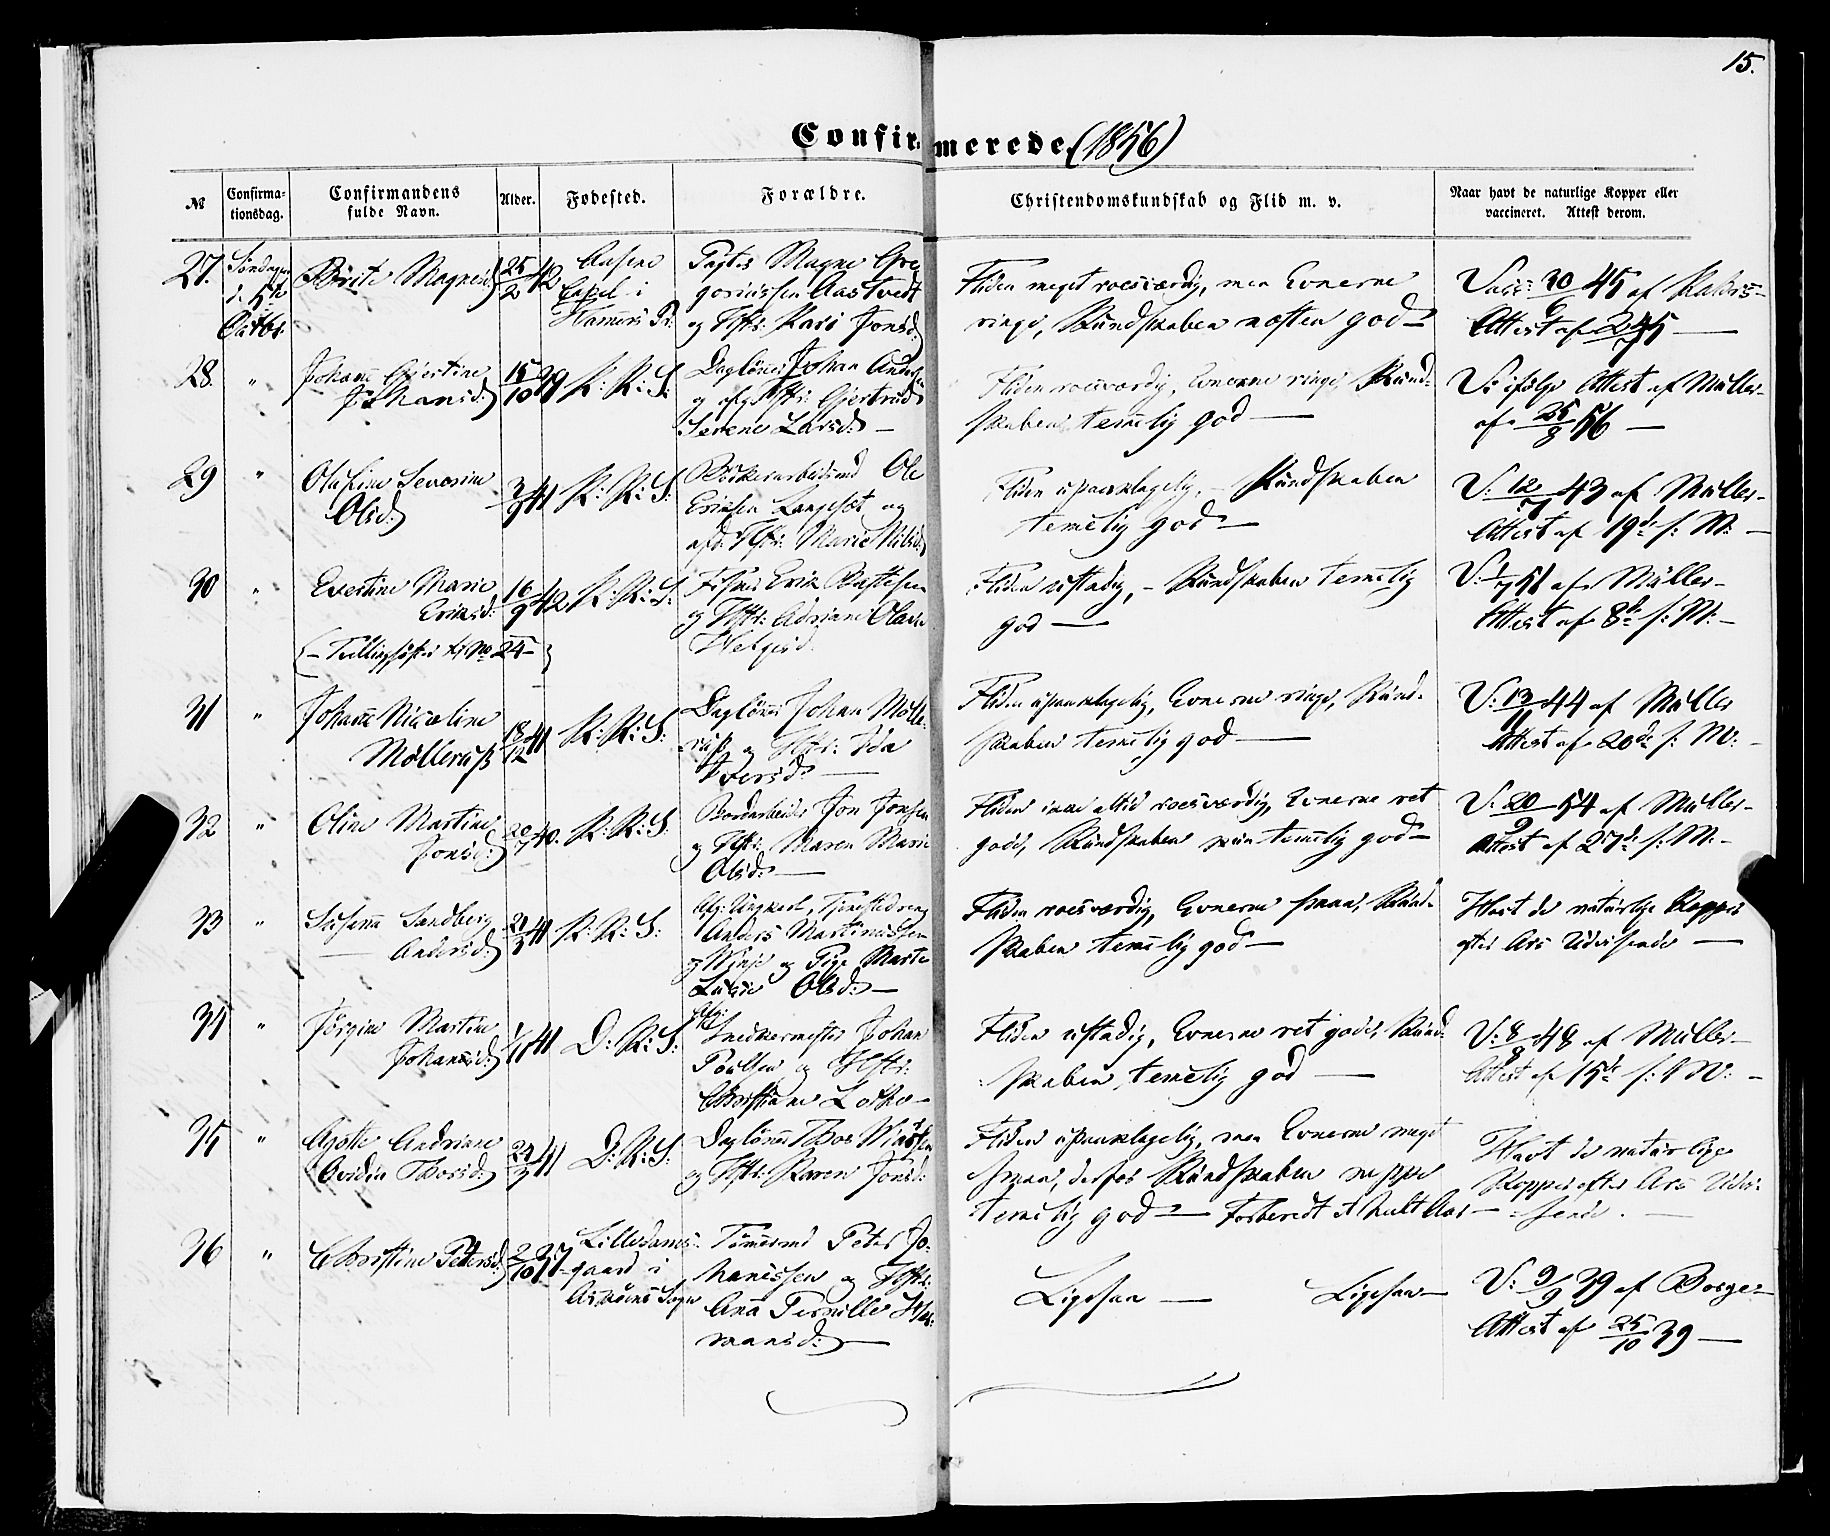 15.
Confirmerede (1856)
№
Confirma-
tionsdag.
Confirmandens
fulde Navn.
Alder.
Fødested.
Forældre.
Christendomskundskab og Flid m. v.
Naar havt de naturlige Kopper eller
vaccineret. Attest derom.
27.
Søndagen
d. 5te
Octbr
Brite Magnesd:
25/2 42
Aasene
Capel i
Hammers Pr:
Magne Gre
goriussen Aastvedt
og Hstr: Kari Jonsd:
Fliden meget roesværdig, men Evnerne
ringe, Kundskaben næsten god —
Vacc: 30/6 45 af
Attest af 2/7 45 —
28.
"
Johanne Gjertine
Johansd:
15/10 39
K: K: S:
Daglønner Johan
og afg. Hstr: Gjertrud
Serene Larsd: —
Fliden roesværdig, Evnerne ringe, Kund-
skaben temelig god —
V: ifølge Attest af Müller
af 25/8 56 —
29
"
Olufine Severine
Olsd:
3/9 41
K: K: S:
Ole
Ericksen Langesæt og
afd: Hstr: Marie Nilsd:
Fliden upaaklagelig, — Kundskaben
temelig god —
V: 12/7 43 af Müller —
Attest af 19de s: M: —
30
"
Evertine Marie
Eriksd:
16/9 42
K: K: S:
(— Tvillingsøster til No 24 —)
Fisker Erik Bastesen
og Hstr: Adriane Olave
Helgesd.
Fliden ustadig, — Kundskaben temelig
god —
V: 1/7 51 af Müller —
Attest af 8de s: M: —
31
"
Johanne Nicoline
Møllerup
18/12 41
K: K: S:
Daglønner Johan Mølle-
rup og Hstr: Ida
Iversd: —
Fliden upaaklagelig, Evnerne ringe, Kund-
skaben temelig god —
V: 13/11 44 af Müller
Attest af 20de s: M: —
32
"
Oline Martine
Jonsd:
20/7 40.
K: K: S:
Bordarbeider Jon Jonsen
og Hstr: Maren Marie
Olsd: —
Fliden ikke altid roesværdig, Evnerne ret
gode, Kundskaben kun temelig god —
V: 20/9 54 af Müller —
Attest af 27de s: M: —
33
"
Susanna Sandberg
Andersd:
41
K: K: S:
Afg: Ungkarl, Tjenestedreng
Anders Martinussen
og Pige Marte
Lucie Olsd: —
Fliden roesværdig, Evnerne smaae, Kund-
skaben temelig god —
Havt de naturlige Kopper
efter Ars Udvisende —
34
"
Jørgine Martine
Johansd:
1/11 41
D: K: S:
Afg:
Snedkermester Johan
Poulsen og Hstr:
Christiane Lothe —
Fliden ustadig, Evnerne ret gode, Kund-
skaben temelig god —
V: 8/8 48 af Müller —
Attest af 15de s: M: —
35
"
Agathe Andriane
Ovidia Thorsd:
41
D: K: S:
Daglønner Thor
og Hstr: Karen Jonsd:
Fliden upaaklagelig, men Evnerne meget
smaa, derfor Kundskaben neppe
temelig god — Forberedt et halvt Aar —
Havt de naturlige
Kopper efter Ars Udvi-
sende. —
36
"
Christine Petersd:
2/10 37
Lilledams-
gaard i
Askøens Sogn
Tømmermd Peter Jo-
hanessen og Hstr:
Ana Pernille Her-
mansd: —
Ligesaa —
Ligesaa —
V: 9/9 39 af Borge —
Attest af 25/10 39 —